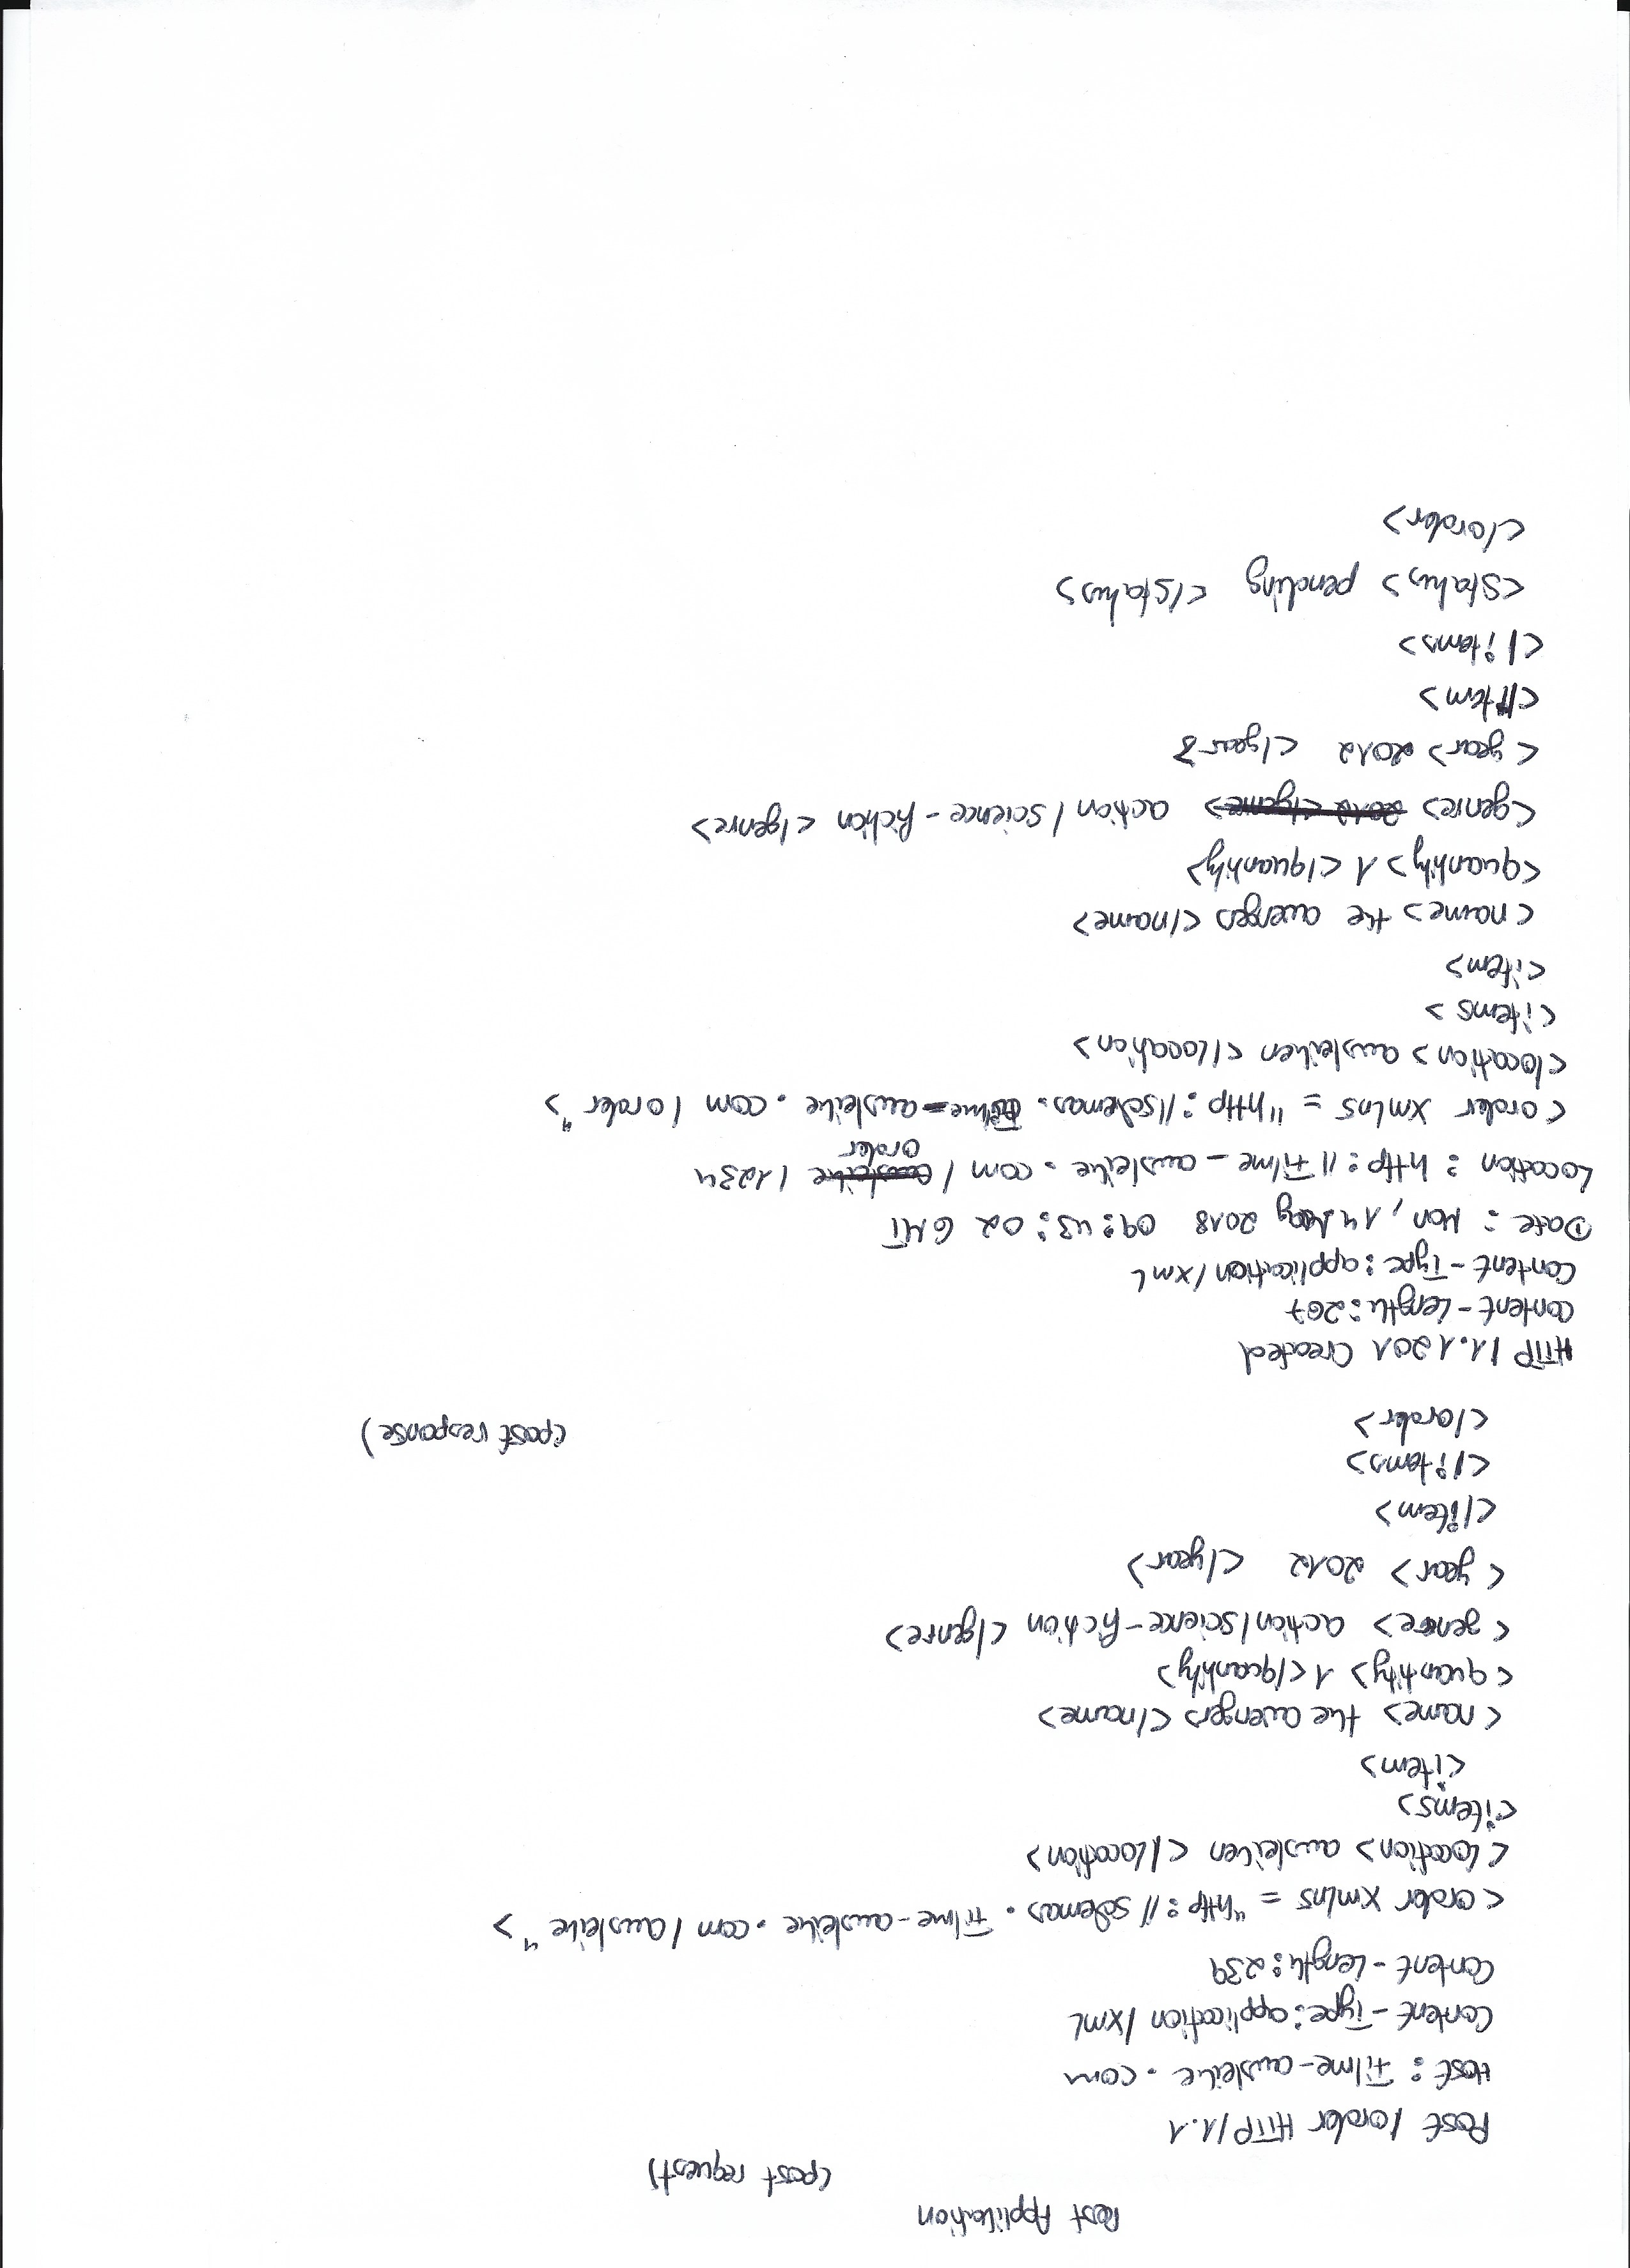 Rest Applikation
(post request)
Post /order HTTP/1.1
Host: Filme-ausleihe.com
Content-Type: application/xml
Content-Length: 239
<order xmlns = "http://schemas.Filme-ausleihe.com/ausleihe">
<location> ausleihen </location>
<items>
<item>
<name> the avengers </name>
<quantity> 1 </quantity>
<genre> action/science-fiction </genre>
<year> 2012 </year>
</item>
</items>
</order>
(post response)
HTTP/1.1 201 Created
Content-Length: 267
Content-Type: application/xml
Date: Mon, 14 May 2018 09:43:02 GMT
Location: http://Filme-ausleihe.com/order/1234
<order xmlns = "http://schemas.Filme-ausleihe.com/order">
<location> ausleihen </location>
<items>
<item>
<name> the avenges </name>
<quantity> 1 </quantity>
<genre> action/science-fiction </genre>
<year> 2012 </year>
</item>
</items>
<status> pending </status>
</order>